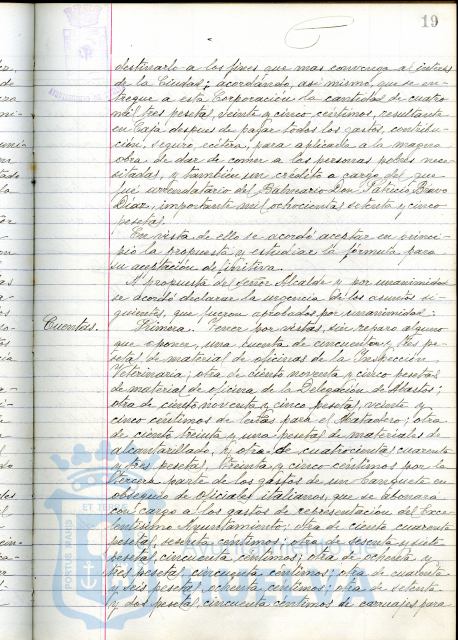 19
destinarlo a los fines que mas convenga al interés
de la Ciudad; acordándo, asi mismo, que se en-
tregue a esta Corporación la cantidad de cuatro
mil tres pesetas, veinte y cinco centimos, resultante
en Caja despues de pagar todos los gastos, contribu-
ción, seguro, ecétera, para aplicarla a la magna
obra de dar de comer a las personas pobres nece-
sitadas, y tambien un crédito a cargo del que
fué arrendatario del Balneario Don Patricio Bravo
Diaz, importante mil ochocientas setenta y cinco
pesetas.
En vista de ello se acordó aceptar en princi-
pio la propuesta y estudiar la fórmula para
su aceptación definitiva.
A propuesta del Señor Alcalde y por unanimidad
se acordó declarar la urgencia de los asuntos si-
guientes, que fueron aprobados por unanimidad:
Cuentas. Primera. Tener por vistas, sin reparo alguno
que oponer, una cuenta de cincuenta y tres pe-
setas de material de oficinas de la Inspección
Veterinaria; otra de ciento noventa y cinco pesetas
de material de oficina de la Delegación de Abastos;
otra de ciento noventa y cinco pesetas, veinte y
cinco centimos de para el Matadero; otra
de ciento treinta y una pesetas de materiales de
alcantarillado, y otra de cuatrocientas cuarenta
y tres pesetas, treinta y cinco centimos por la
tercera parte de los gastos de un banquete en
obsequio de oficiales italianos, que se abonará
con cargo a los gastos de representación del Exce-
lentísimo Ayuntamiento; otra de ciento cuarenta
pesetas, sesenta centimos; otra de sesenta y siete
pesetas, cincuenta centimos; otra de ochenta y
tres pesetas, cincuenta céntimos; otra de cuarenta
y seis pesetas, ochenta centimos; otra de setenta
y dos pesetas, cincuenta centimos de carruajes para
PORTUS MAGNUS